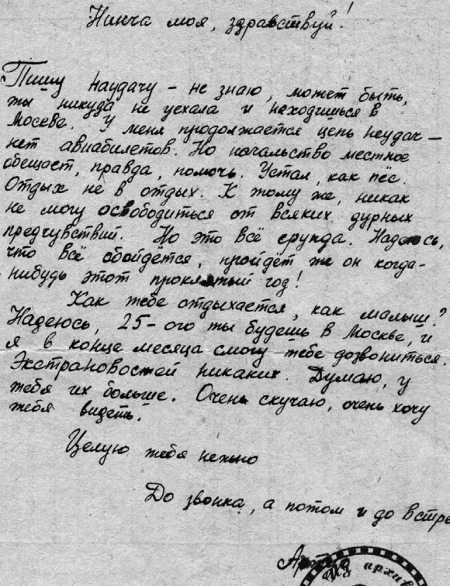 Нинча моя, здравствуй!
Пишу наудачу – не знаю, может быть,
ты никуда не уехала и находишься в
Москве. У меня продолжается цепь неудач –
нет авиабилетов. Но начальство местное
обещает, правда, помочь. Устал, как пёс.
Отдых не в отдых. К тому же, никак
не могу освободиться от всяких дурных
предчувствий. Но это всё ерунда. Надеюсь,
что всё обойдется, пройдёт же он когда-
нибудь этот проклятый год!
Как тебе отдыхается, как малыш?
Надеюсь, 25-ого ты будешь в Москве, и
я в конце месяца смогу тебе дозвониться.
Экстрановостей никаких. Думаю, у
тебя их больше. Очень скучаю, очень хочу
тебя видеть.
Целую тебя нежно
До звонка, а потом и до встре
Из архив